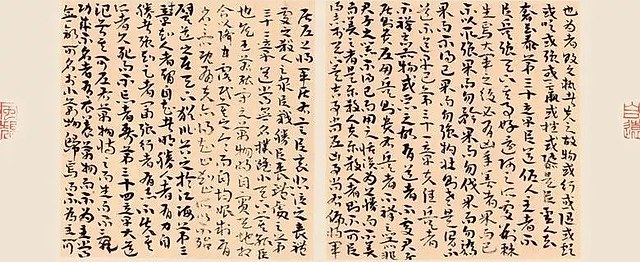 也為者敗之執者失之故物或行或隨或歔
或吹或強或羸或挫或隳是以聖人去
奢去泰第三十章以道佐人主者不
以兵強天下其事好還師之所處荊棘
生焉大軍之後必有凶年善者果而已
不敢以取強果而勿矜果而勿伐果而勿驕
果而不得已果而勿強物壯則老是謂不
道不道早已第三十一章夫佳兵者
不祥之器物或惡之故有道者不處君子
居則貴左用兵則貴右兵者不祥之器非
君子之器不得已而用之恬淡為上勝而不美
而美之者是樂殺人夫樂殺人者則不可
志於天下矣吉事尚左凶事尚右偏將軍
居左上將軍居右言以喪禮
處之殺人之眾以哀悲泣之戰勝以喪禮處之第
三十二章道常無名樸雖小天下莫能臣
也侯王若能守之萬物將自賓天地相
合以降甘露民莫之令而自均始制有
名名亦既有夫亦將知止知止可以不殆
譬道之在天下猶川谷之於江海第三
十三章知人者智自知者明勝人者有力自
勝者強知足者富強行者有志不失其所
者久死而不亡者壽第三十四章大道
氾兮其可左右萬物恃之而生而不辭
功成不名有衣養萬物而不為主常
無欲可名於小萬物歸焉而不為主可